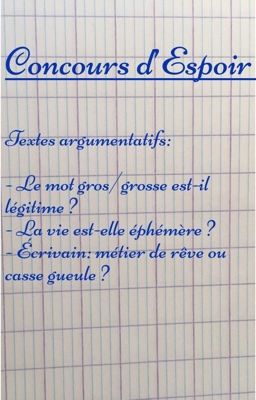 Concours d'Espoir
Textes argumentatifs:
- Le mot gros/grosse est-il
légitime ?
- La vie est-elle éphémère ?
- Écrivain: métier de rêve ou
casse gueule ?